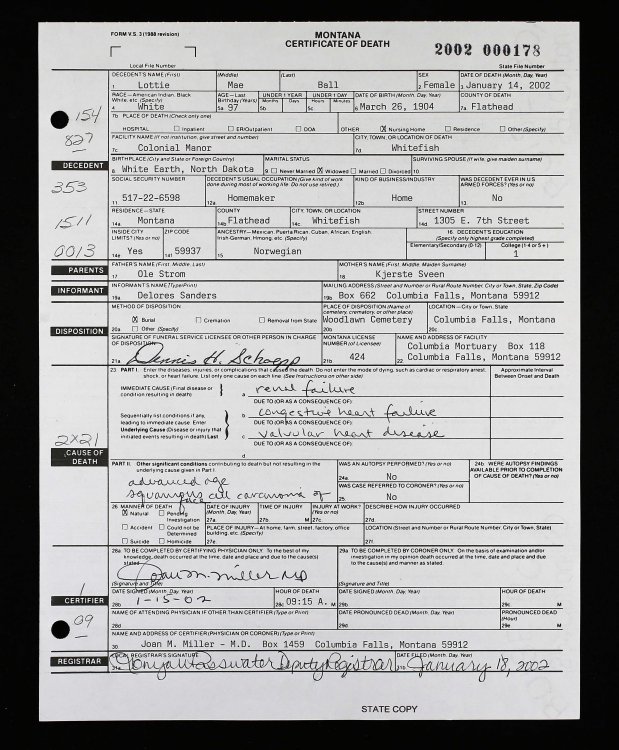 FORM V.S. 3 (1988 revision)
MONTANA
CERTIFICATE OF DEATH
2002 000178
Local File Number
State File Number
DECEDENT'S NAME (First) (Middle) (Last) SEX DATE OF DEATH (Month, Day, Year)
1. Lottie Mae Ball 2. Female 3. January 14, 2002
RACE—American Indian, Black AGE—Last UNDER 1 YEAR UNDER 1 DAY DATE OF BIRTH (Month, Day, Year) COUNTY OF DEATH
White, etc. (Specify) Birthday (Years) Months Days Hours Minutes
4. White 5a. 97 5b. 5c. 6. March 26, 1904 7a. Flathead
154
7b. PLACE OF DEATH (Check only one)
HOSPITAL Inpatient ER/Outpatient DOA OTHER X Nursing Home Residence Other (Specify)
827
FACILITY NAME (If not institution, give street and number) CITY, TOWN, OR LOCATION OF DEATH
7c. Colonial Manor 7d. Whitefish
BIRTHPLACE (City and State or Foreign Country) MARITAL STATUS SURVIVING SPOUSE (If wife, give maiden surname)
DECEDENT
8. White Earth, North Dakota 9. Never Married X Widowed Married Divorced 10.
SOCIAL SECURITY NUMBER DECEDENT'S USUAL OCCUPATION (Give kind of work KIND OF BUSINESS/INDUSTRY WAS DECEDENT EVER IN U.S.
done during most of working life. Do not use retired.) ARMED FORCES? (Yes or no)
353
11. 517-22-6598 12a. Homemaker 12b. Home 13. No
RESIDENCE—STATE COUNTY CITY, TOWN, OR LOCATION STREET NUMBER
1511
14a. Montana 14b. Flathead 14c. Whitefish 14d. 1305 E. 7th Street
INSIDE CITY ZIP CODE ANCESTRY—Mexican, Puerto Rican, Cuban, African, English, 16. DECEDENT'S EDUCATION
LIMITS? (Yes or no) Irish, German, Hmong, etc. (Specify) (Specify only highest grade completed)
Elementary/Secondary (0-12) College (1-4 or 5+)
0013
14e. Yes 14f. 59937 15. Norwegian 1
FATHER'S NAME (First, Middle, Last) MOTHER'S NAME (First, Middle, Maiden Surname)
PARENTS
17. Ole Strom 18. Kjerste Sveen
INFORMANT'S NAME (Type/Print) MAILING ADDRESS (Street and Number or Rural Route Number, City or Town, State, Zip Code)
INFORMANT
19a. Delores Sanders 19b. Box 662 Columbia Falls, Montana 59912
METHOD OF DISPOSITION PLACE OF DISPOSITION (Name of LOCATION—City or Town, State
cemetery, crematory, or other place)
X Burial Cremation Removal from State Woodlawn Cemetery Columbia Falls, Montana
DISPOSITION
20a. Other (Specify) 20b. 20c.
SIGNATURE OF FUNERAL SERVICE LICENSEE OR OTHER PERSON IN CHARGE MONTANA LICENSE NAME AND ADDRESS OF FACILITY
OF DISPOSITION NUMBER (of Licensee) Columbia Mortuary Box 118
21a. Dennis H. Schoepp 21b. 424 22. Columbia Falls, Montana 59912
23. PART I. Enter the diseases, injuries, or complications that caused the death. Do not enter the mode of dying, such as cardiac or respiratory arrest, Approximate Interval
shock, or heart failure. List only one cause on each line. (See instructions on other side) Between Onset and Death
IMMEDIATE CAUSE (Final disease or
condition resulting in death) a. renal failure
DUE TO (OR AS A CONSEQUENCE OF):
Sequentially list conditions if any, b. congestive heart failure
leading to immediate cause. Enter DUE TO (OR AS A CONSEQUENCE OF):
Underlying Cause (Disease or injury that
initiated events resulting in death) Last c. valvular heart disease
DUE TO (OR AS A CONSEQUENCE OF):
2x21
d.
CAUSE OF
DEATH
PART II. Other significant conditions contributing to death but not resulting in the WAS AN AUTOPSY PERFORMED? (Yes or no) 24b. WERE AUTOPSY FINDINGS
underlying cause given in Part I. AVAILABLE PRIOR TO COMPLETION
OF CAUSE OF DEATH? (Yes or no)
advanced age 24a. No
WAS CASE REFERRED TO CORONER? (Yes or no)
squamous cell carcinoma of 25. No
face
26. MANNER OF DEATH DATE OF INJURY TIME OF INJURY INJURY AT WORK? DESCRIBE HOW INJURY OCCURRED
X Natural Pending (Month, Day, Year) (Yes or no)
Investigation 27a. 27b. M 27c. 27d.
Accident Could not be PLACE OF INJURY—At home, farm, street, factory, office LOCATION (Street and Number or Rural Route Number, City or Town, State)
Determined building, etc. (Specify)
Suicide Homicide 27e. 27f.
28a. TO BE COMPLETED BY CERTIFYING PHYSICIAN ONLY. To the best of my 29a. TO BE COMPLETED BY CORONER ONLY. On the basis of examination and/or
knowledge, death occurred at the time, date and place and due to the cause(s) investigation in my opinion death occurred at the time, date and place and due
stated. to the cause(s) and manner as stated.
Joan M. Miller MD
(Signature and Title) (Signature and Title)
1
DATE SIGNED (Month, Day, Year) HOUR OF DEATH DATE SIGNED (Month, Day, Year) HOUR OF DEATH
CERTIFIER
28b. 1-15-02 28c. 09:15 A. M 29b. 29c. M
NAME OF ATTENDING PHYSICIAN IF OTHER THAN CERTIFIER (Type or Print) DATE PRONOUNCED DEAD (Month, Day, Year) PRONOUNCED DEAD
(Hour)
09
28d. 29d. 29e. M
NAME AND ADDRESS OF CERTIFIER (PHYSICIAN OR CORONER) (Type or Print)
30. Joan M. Miller - M.D. Box 1459 Columbia Falls, Montana 59912
LOCAL REGISTRAR'S SIGNATURE DATE FILED (Month, Day, Year)
REGISTRAR
31a. Tonya Wasswater Deputy Registrar 31b. January 18, 2002
STATE COPY